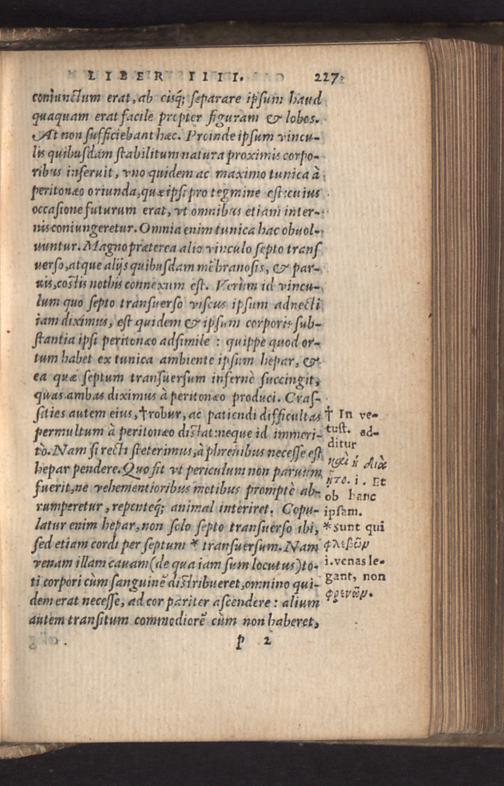 LIBER IIII. 227
coniunctum erat, ab eisq; separare ipsum haud
quaquam erat facile propter figuram & lobos.
At non sufficiebant hæc. Proinde ipsum vincu-
lis quibusdam stabilitum natura proximis corpo-
ribus inseruit, vno quidem ac maximo tunica à
peritonæo oriunda, quæ ipsi pro tegmine est: cuius
occasione futurum erat, vt omnibus etiam inter-
nis coniungeretur. Omnia enim tunica hac obuol-
uuntur. Magno præterea alio vinculo septo transf
uerso, atque alijs quibusdam mẽbranosis, & par-
uis, costis nothis connexum est. Verùm id vincu-
lum quo septo transuerso viscus ipsum adnecti
iam diximus, est quidem & ipsum corporis sub-
stantia ipsi peritonæo adsimile : quippe quod or-
tum habet ex tunica ambiente ipsum hepar, &
ea quæ septum transuersum infernè succingit,
quas ambas diximus à peritonæo produci. Cras-
sities autem eius, †robur, ac patiendi difficultas
permultum à peritonæo distat: neque id immeri-
tò. Nam si recti steterimus, à phrenibus necesse est
hepar pendere. Quo fit vt periculum non paruum
fuerit, ne vehementioribus motibus promptè ab-
rumperetur, repenteq; animal interiret. Copu-
latur enim hepar, non solo septo transuerso ibi,
sed etiam cordi per septum * transuersum. Nam
venam illam cauam (de qua iam sum locutus) to-
ti corpori cùm sanguinẽ distribueret, omnino qui-
dem erat necesse, ad cor pariter ascendere : alium
autem transitum commodiorẽ cùm non haberet,
p 2
† In ve-
tust. ad-
ditur
i. Et
ob hanc
ipsam.
* sunt qui
φλεβῶν
i. venas le-
gant, non
φρενῶν.